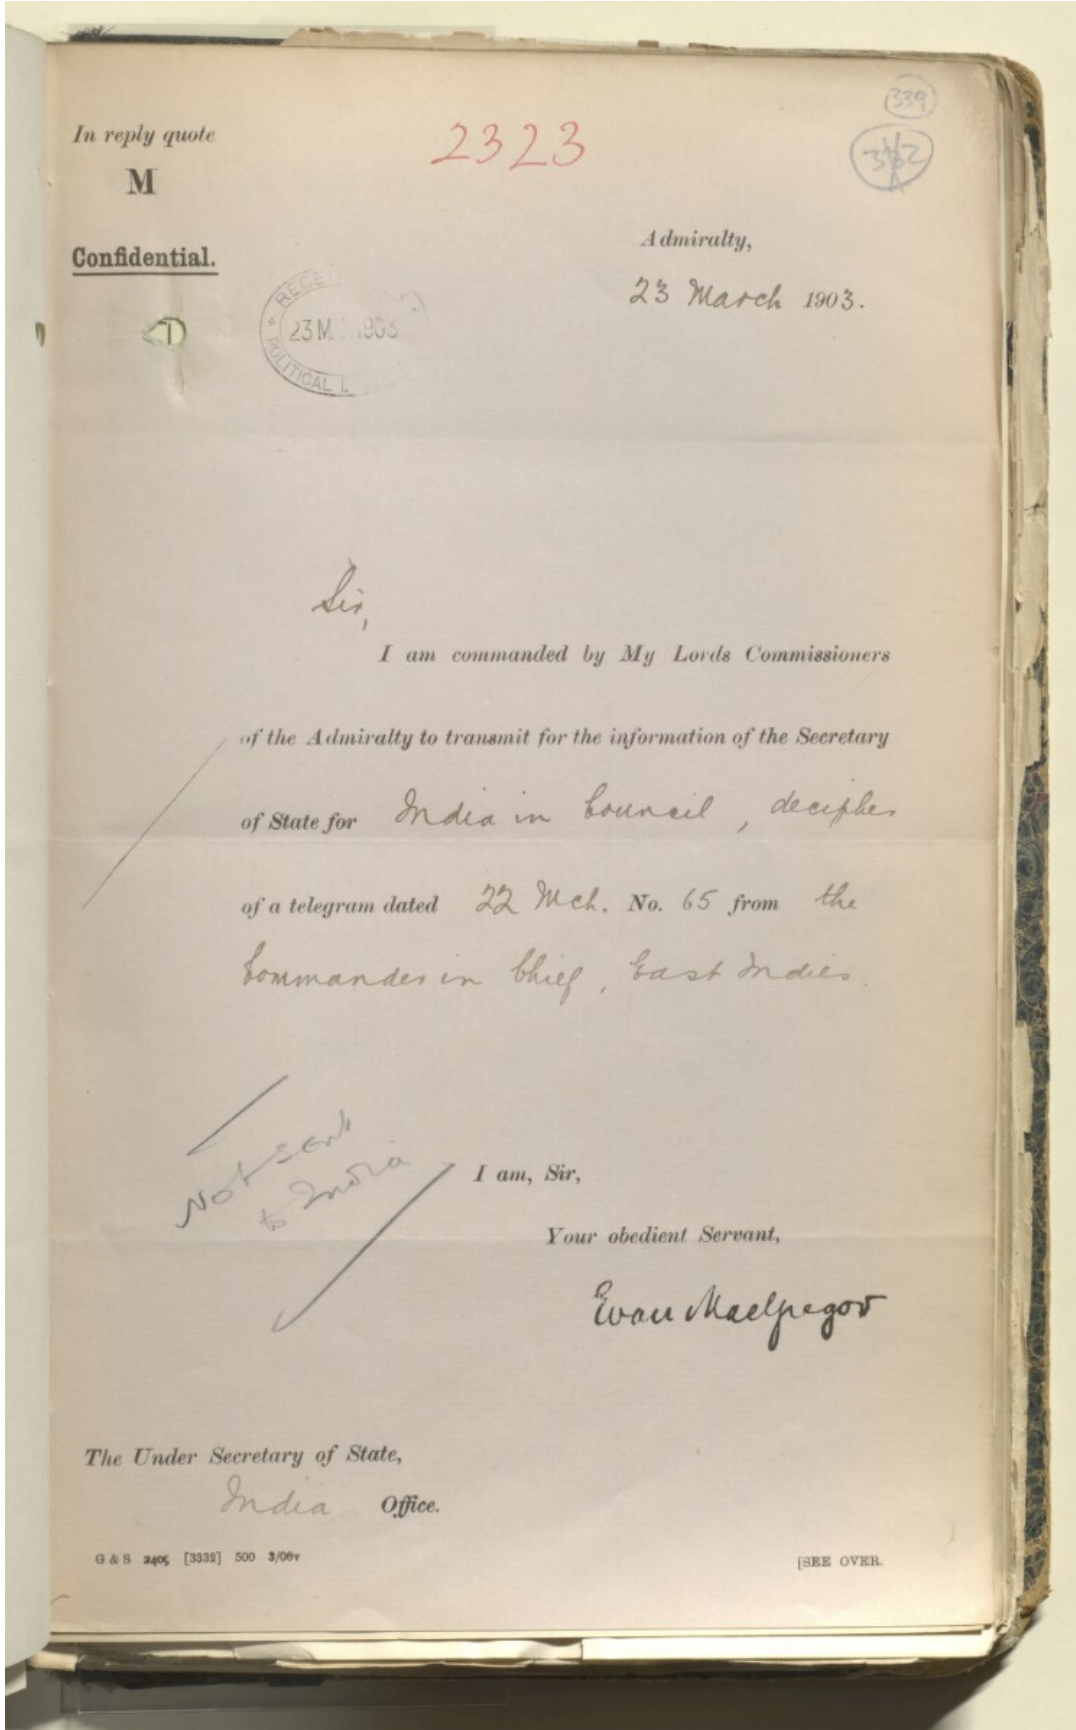 339
In reply quote
2323
M
Confidential.
Admiralty,
23 March 1903.
23 M 1903
POLITICAL
Sir,
I am commanded by My Lords Commissioners
of the Admiralty to transmit for the information of the Secretary
of State for India in Council, decipher
of a telegram dated 22 Mch. No. 65 from the
Commander in Chief, East Indies.
Not sent
to India
I am, Sir,
Your obedient Servant,
Evan MacGregor
The Under Secretary of State,
India Office.
G & S 2405 [3332] 500
[SEE OVER.